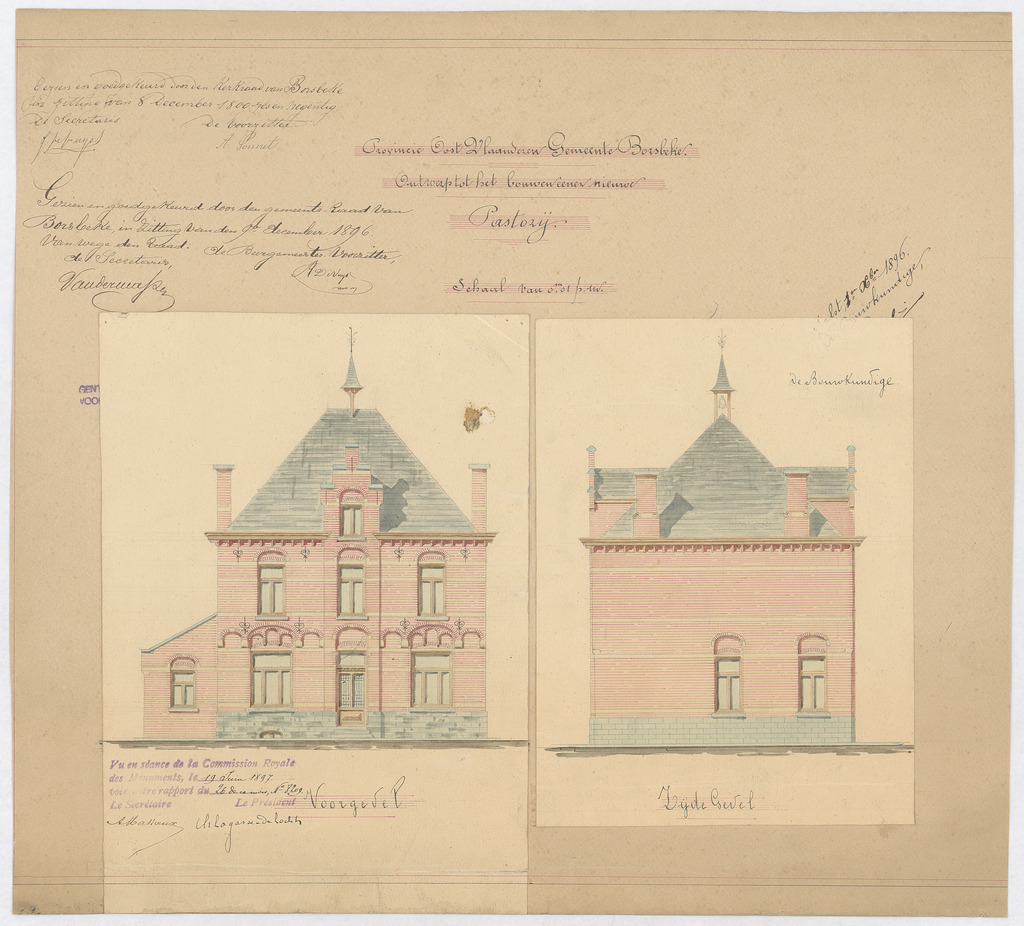 Gezien en goedgekeurd door den Kerkraad van Borsbeke
in zitting van 8 December 1800 zes en negentig
De Secretaris De Voorzitter
A. Sonnet
Provincie Oost Vlaanderen Gemeente Borsbeke.
Ontwerp tot het bouwen eener nieuwe
Pastorij.
Schaal van 0m01 p.m.
Gezien en goedgekeurd door den gemeente Raad van
Borsbeke, in Zitting van den 9n december 1896.
Van wege den Raad:
de Secretaris, de Burgemeester Voorzitter,
Vandermassen
1n Xber 1896.
Bouwkundige,
GENT
VOO
de Bouwkundige
Vu en séance de la Commission Royale
des Monuments, le 19 Juin 1897
voir notre rapport du 26 de ce mois, No
Le Secrétaire Le Président
A. Massaux
Voorgevel
Zijde Gevel